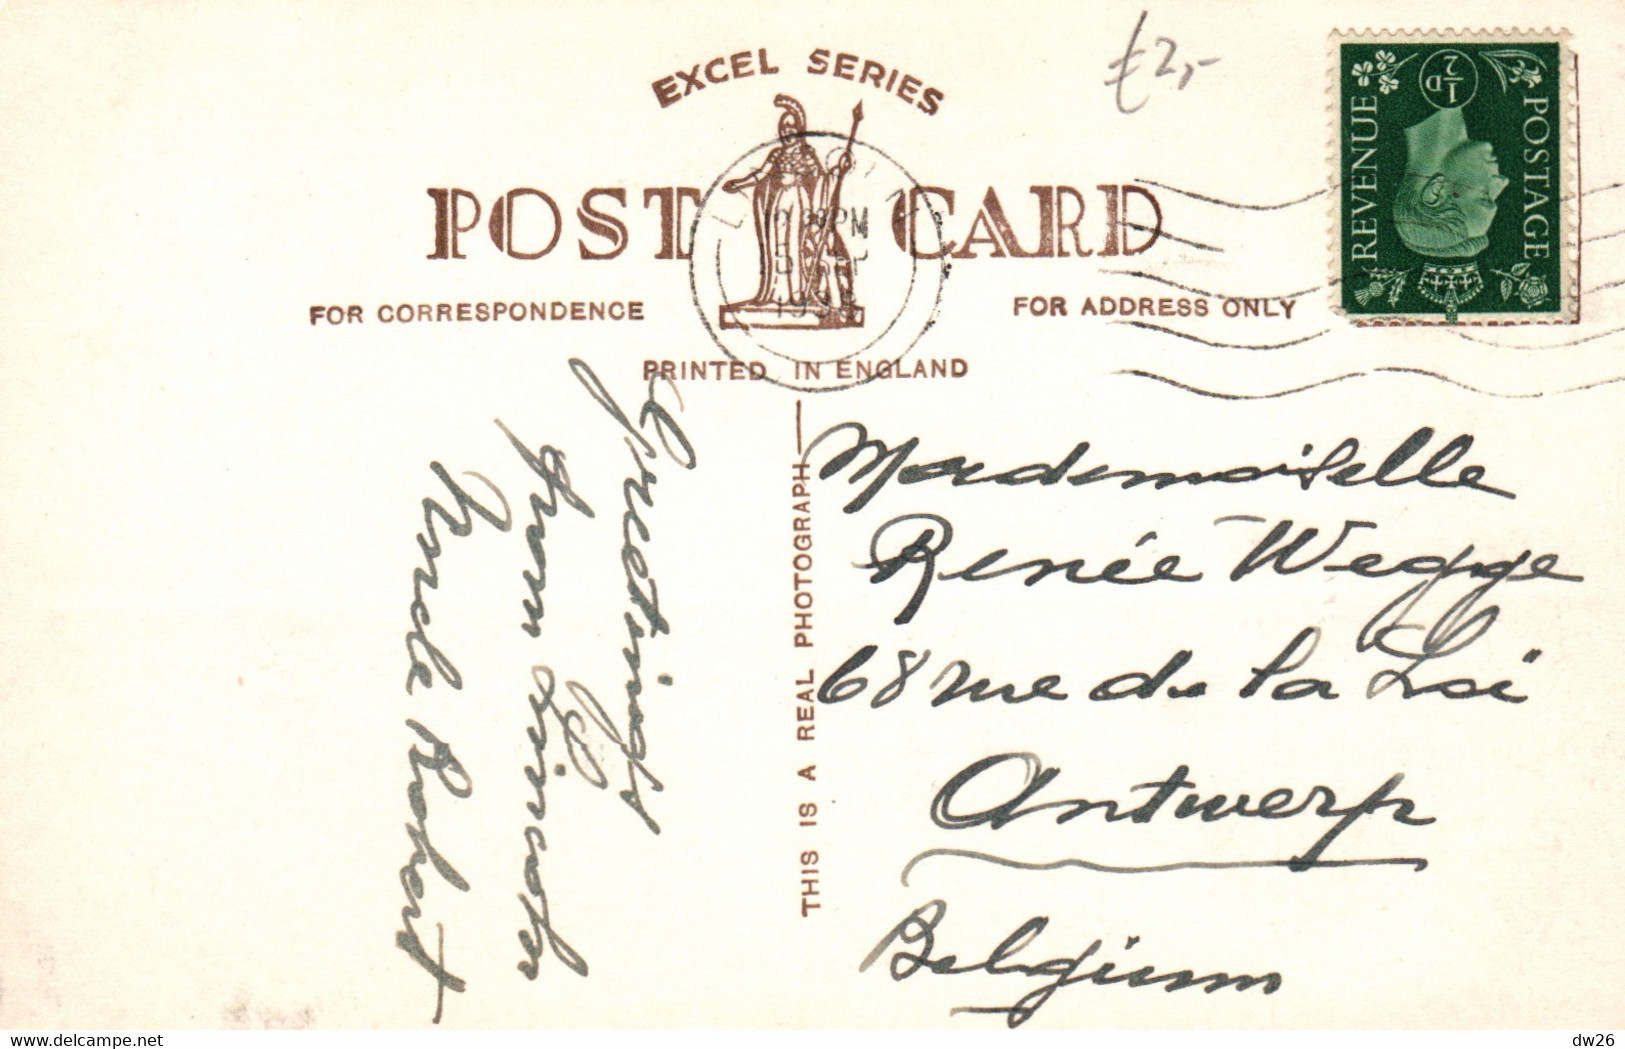 EXCEL SERIES
POST CARD
FOR CORRESPONDENCE
FOR ADDRESS ONLY
PRINTED IN ENGLAND
THIS IS A REAL PHOTOGRAPH
£2,-
REVENUE
POSTAGE
½D
PM
SEP
Greetings
from Lincoln
Uncle Robert
Mademoiselle
Renée Wegge
68 rue de la Loi
Antwerp
Belgium
delcampe.net
dw26